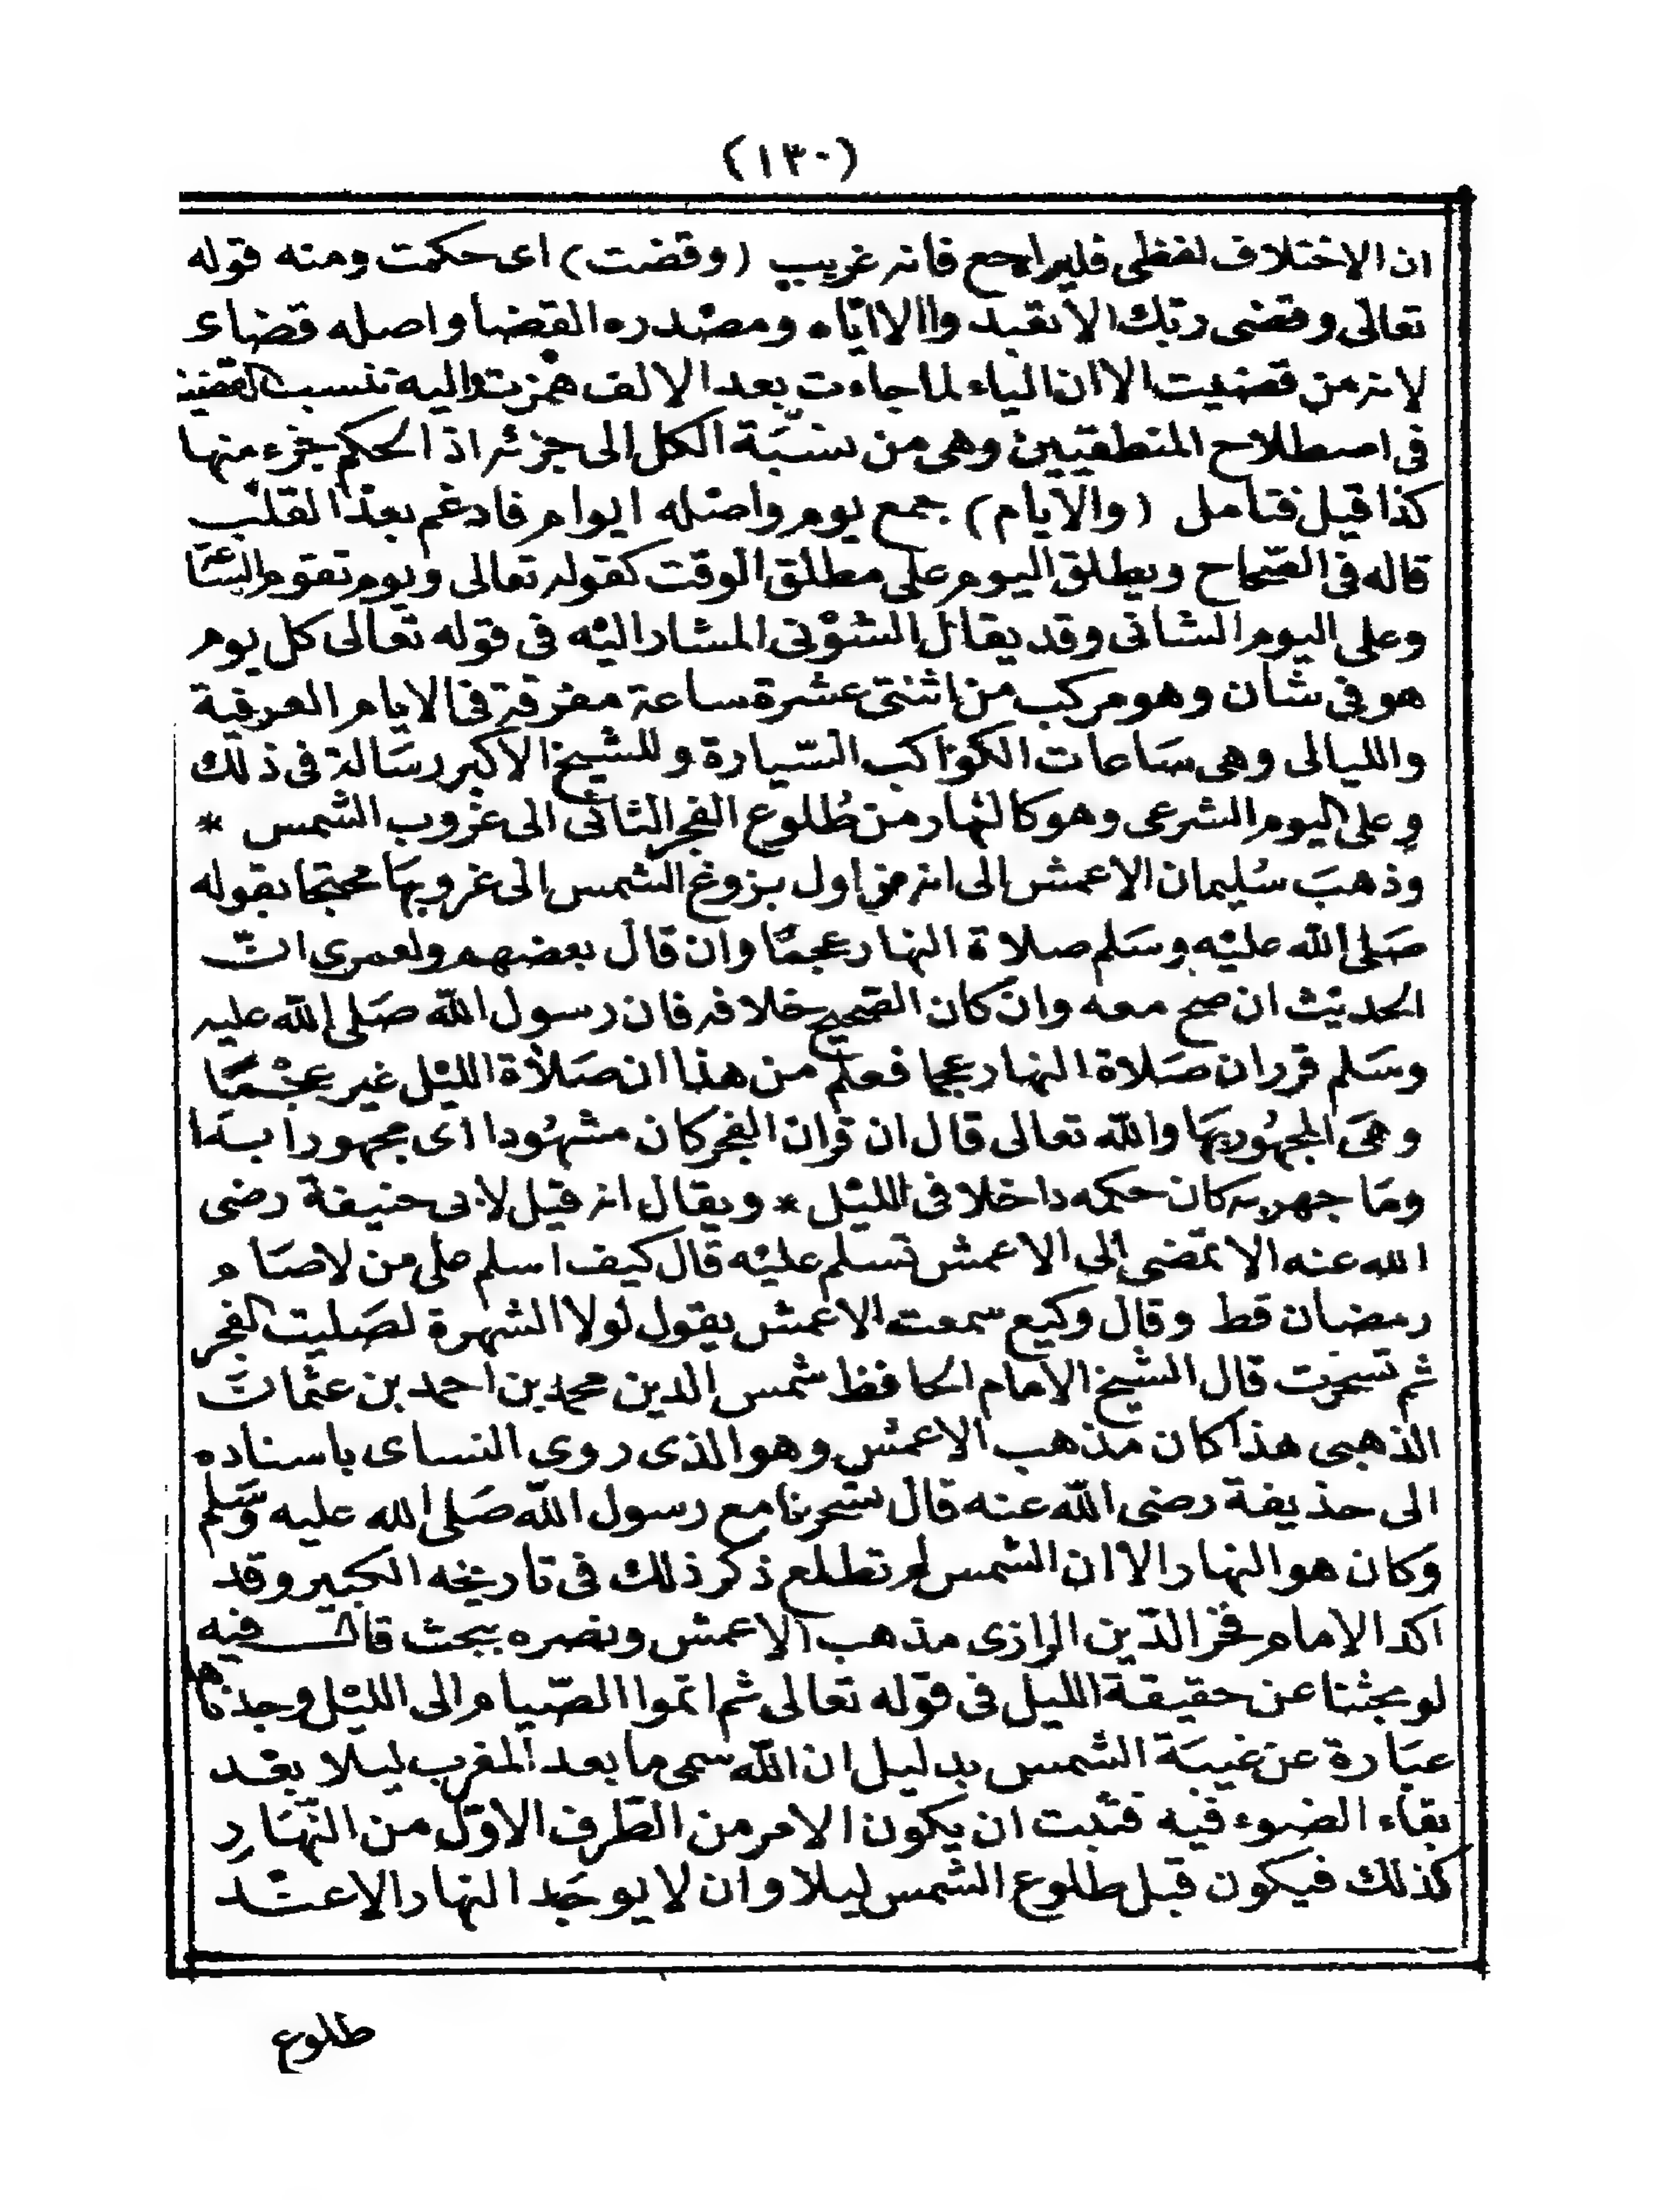 (١٣٠)
ان الاختلاف لفظى فليراجع فانه غريب (وقضت) اى حكمت ومنه قوله
تعالى وقضى ربك الا تعبدوا الا اياه ومصدره القضا واصله قضاى
لانه من قضيت الا ان الياء لما جاءت بعد الالف همزت واليه تنسب القضية
فى اصطلاح المنطقيين وهى من نسبة الكل الى جزئه اذ الحكم جزء منها
كذا قيل فتامل (والايام) جمع يوم واصله ايوام فادغم بعد القلب
قاله فى الصحاح ويطلق اليوم على مطلق الوقت كقوله تعالى ويوم تقوم الساعة
وعلى اليوم الشانى وقد يقال الشؤنى المشار اليه فى قوله تعالى كل يوم
هو فى شان وهو مركب من اثنتى عشرة ساعة مفرقة فى الايام العرفية
والليالى وهى ساعات الكواكب السيارة وللشيخ الاكبر رسالة فى ذلك
وعلى اليوم الشرعى وهو كالنهار من طلوع الفجر الثانى الى غروب الشمس *
وذهب سليمان الاعمش الى انه من اول بزوغ الشمس الى غروبها محتجا بقوله
صلى الله عليه وسلم صلاة النهار عجما وان قال بعضهم ولعمرى ان
الحديث ان صح معه وان كان الصحيح خلافه فان رسول الله صلى الله عليه
وسلم قرر ان صلاة النهار عجما فعلم من هذا ان صلاة الليل غير عجما
وهى المجهور بها والله تعالى قال ان قران الفجر كان مشهودا اى مجهورا به
وما جهر به كان حكمه داخلا فى الليل * ويقال انه قيل لابى حنيفة رضى
الله عنه الا تمضى الى الاعمش تسلم عليه قال كيف اسلم على من لا صام
رمضان قط وقال وكيع سمعت الاعمش يقول لولا الشهرة لصليت الفجر
ثم تسحرت قال الشيخ الامام الحافظ شمس الدين محمد بن احمد بن عثمان
الذهبى هذا كان مذهب الاعمش وهو الذى روى النساى باسناده
الى حذيفة رضى الله عنه قال تسحرنا مع رسول الله صلى الله عليه وسلم
وكان هو النهار الا ان الشمس لم تطلع ذكر ذلك فى تاريخه الكبير وقد
اكد الامام فخر الدين الرازى مذهب الاعمش ونصره ببحث قال فيه
لو بحثنا عن حقيقة الليل فى قوله تعالى ثم اتموا الصيام الى الليل وجدناها
عبارة عن غيبة الشمس بدليل ان الله سمى ما بعد المغرب ليلا بعد
بقاء الضوء فيه فثبت ان يكون الامر من الطرف الاول من النهار
كذلك فيكون قبل طلوع الشمس ليلا وان لا يوجد النهار الا عند
طلوع